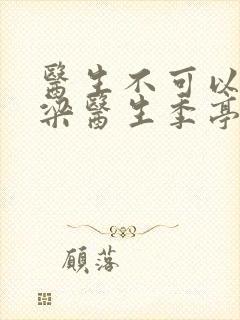 醫生不可以
梁醫生季亭
顧落